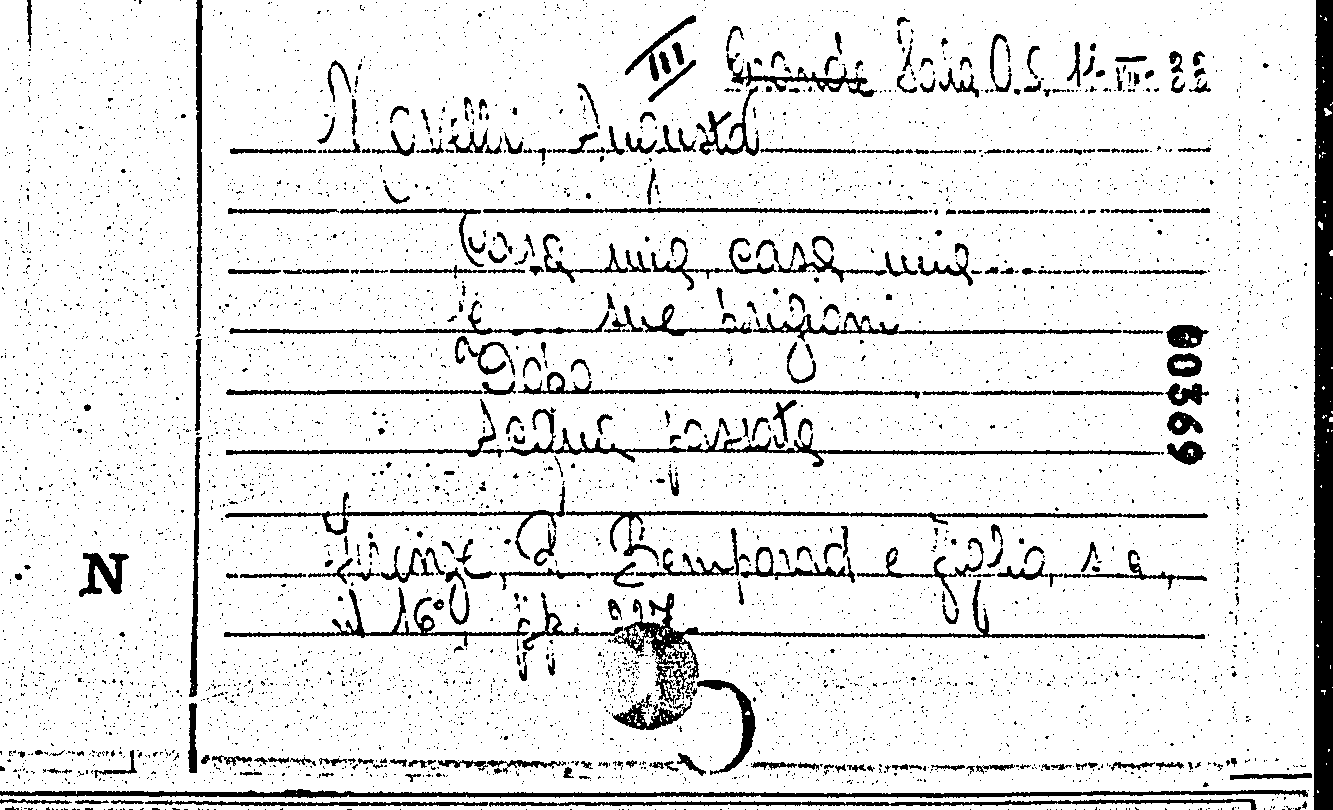 III Grande Sala O.S. 14-III-32
Novelli, Augusto
Casa mia, casa mia....
E.... sue prigioni
Dopo
Acqua passata
00369
Firenze, R. Bemporad e figlio, s.a.,
N
in 16° pp. 227